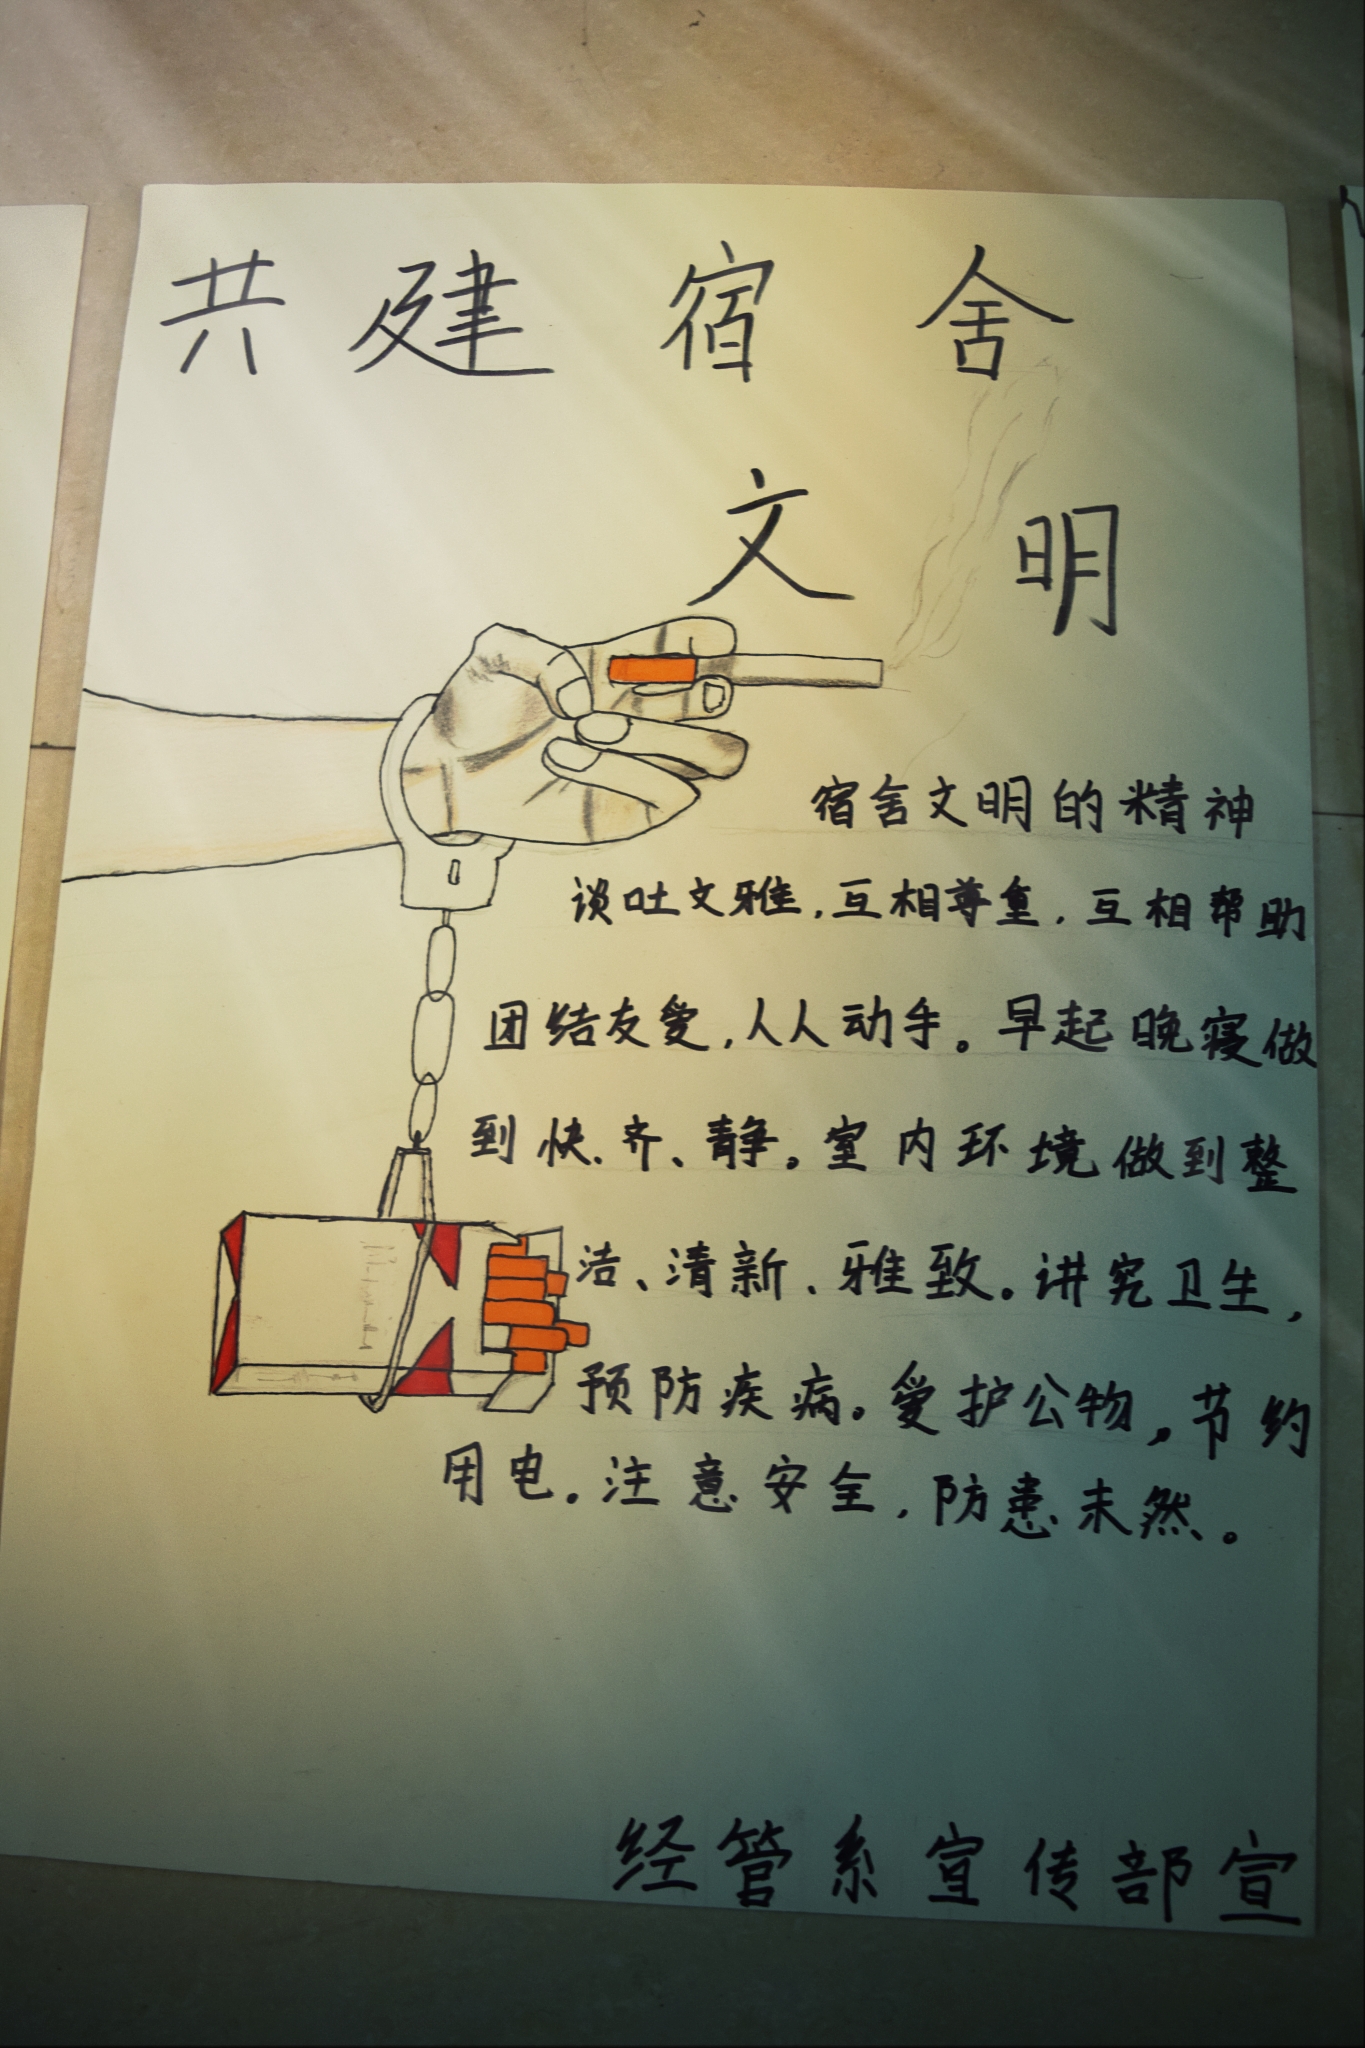 共建宿舍
文明
宿舍文明的精神
谈吐文雅,互相尊重,互相帮助
团结友爱,人人动手。早起晚寝做
到快、齐、静。室内环境做到整
洁、清新、雅致。讲究卫生,
预防疾病。爱护公物,节约
用电。注意安全,防患未然。
经管系宣传部宣